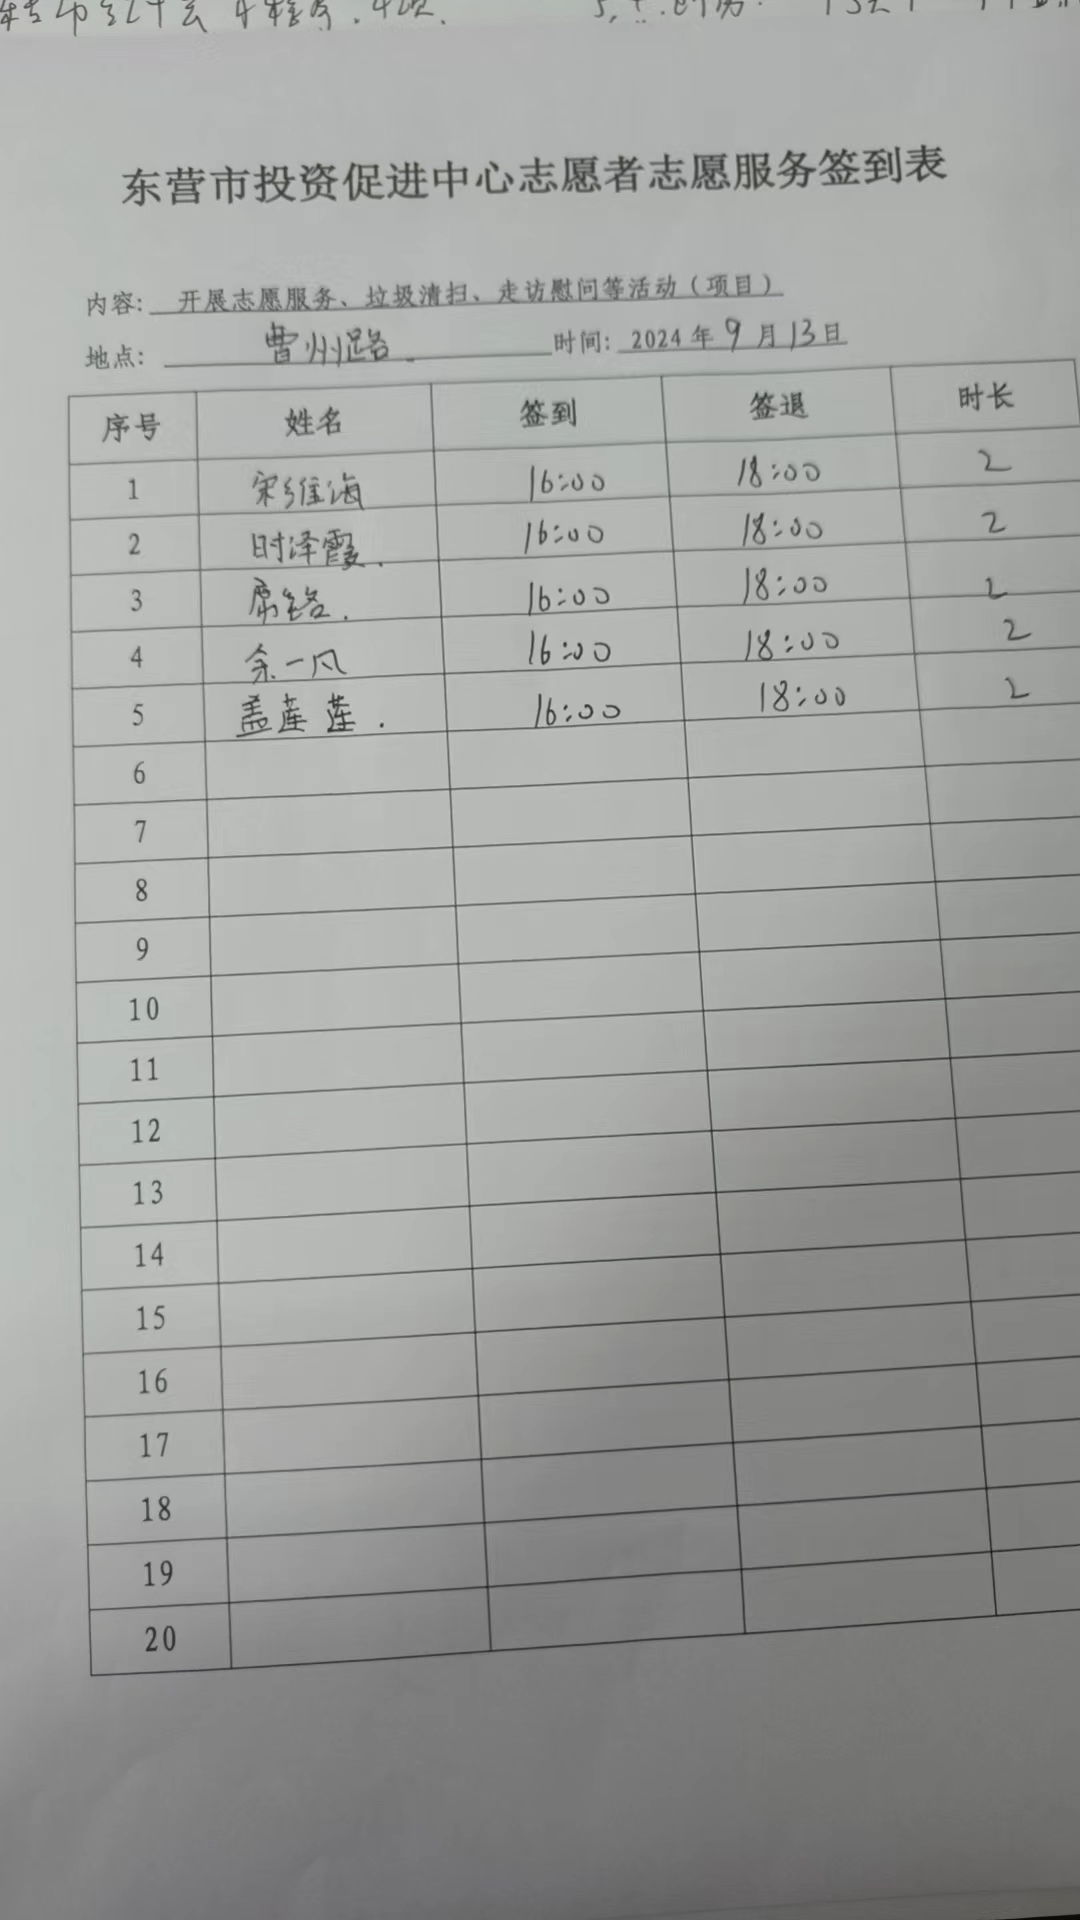 东营市投资促进中心志愿者志愿服务签到表
内容: 开展志愿服务、垃圾清扫、走访慰问等活动（项目）
地点: 曹州路. 时间: 2024 年 9 月 13 日
序号 姓名 签到 签退 时长
1 宋维海 16:00 18:00 2
2 时泽霞. 16:00 18:00 2
3 16:00 18:00 2
4 余一凡 16:00 18:00 2
5 盖莲莲. 16:00 18:00 2
6
7
8
9
10
11
12
13
14
15
16
17
18
19
20